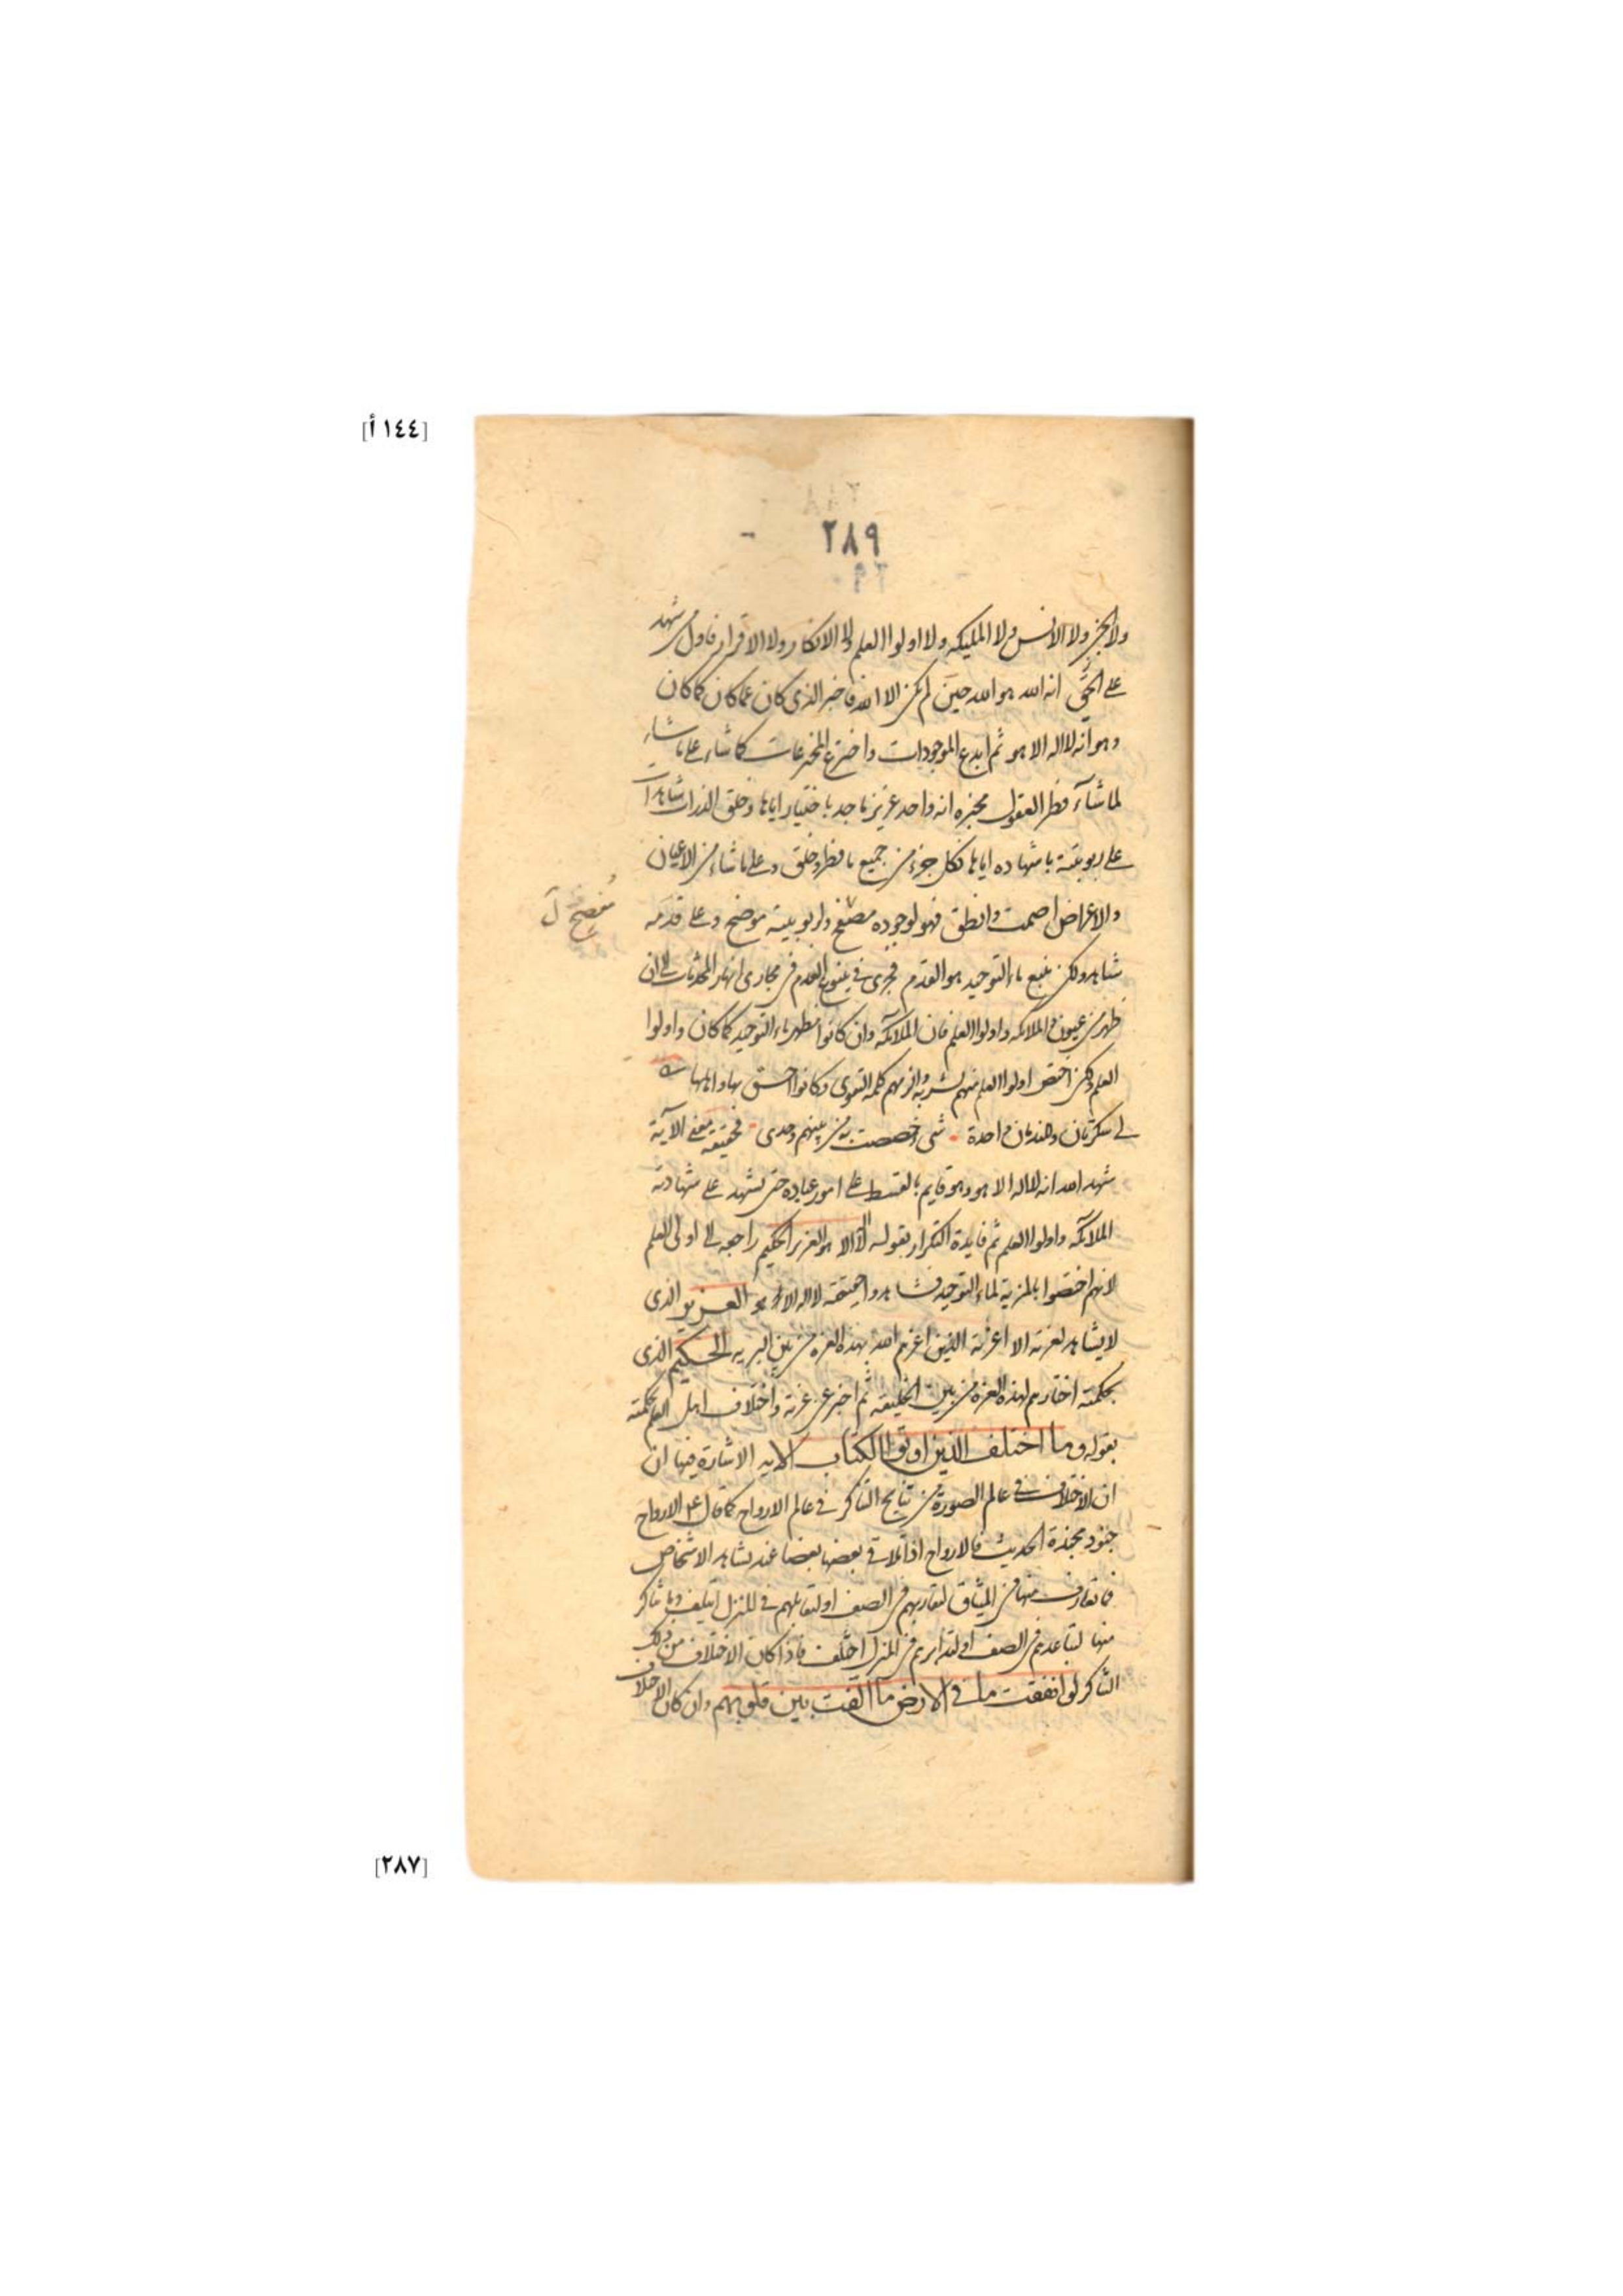 [١٤٤ أ]
٢٨٩
ولا الجن ولا الانس ولا المليكه ولا اولوا العلم ولا الانكار ولا الاقرار فاول من شهد
على الحق انه الله هو الله حين لم يكن الا الله فاخبر الذي كان عما كان كما كان
وهو انه لا اله الا هو ثم ابدع الموجودات واخترع المخترعات كما شاء على ما شاء
لما شآء فطر العقول مخبره انه واحد عزيز ماجد باختيار اياها وخلق الذرات شاهدات
على ربوبيته باشهاده اياها فكل جزء من جميع ما فطر وخلق وعلى ما شاء من الاعيان
والاعراض اصمت وانطق فهو لوجوده مفصح ولربوبيته موضح وعلى قدمه
مفصح
شاهد ولكن ينبع ماء التوحيد هو القدم فجرى في ينبوع القدم في مجارى انهار المحدثات الى ان
ظهر من عيون الملائكه واولوا العلم فان الملائكه وان كانوا مظهر ماء التوحيد كما كان واولوا
العلم ولكن اختص اولوا العلم منهم بشربه والزمهم كلمه التقوى وكانوا احق بها واهلها
لي سكرتان وللندمان واحدة شي خصصت به من بينهم وحدى فحقيقه معنى الآية
شهد الله انه لا اله الا هو وهو قايم بالقسط على امور عباده حتى تشهد على شهادته
الملائكه واولوا العلم ثم فايدة التكرار بقوله لا اله الا هو العزيز الحكيم راجعه الى اولى العلم
لانهم اختصوا بالمزية لماء التوحيد فشاهدوا حقيقه لا اله الا هو العزيز الذي
لا يشاهد لعزته الا اعزته الذين اعزهم الله بهذه العزه من بين البريه الحكيم الذي
بحكمته اختارهم لهذه العزه من بين الخليقه ثم اخبر عن عزته واختلاف اهل العلم بحكمته
بقوله وما اختلف الذين اوتوا الكتاب الايه الاشارة فيها ان
ان الاختلاف في عالم الصورة من نتايج التناكر في عالم الارواح كما قال عم الارواح
جنود مجندة الحديث فالارواح اذا تلاقى بعضها بعضا عند تشاهد الاشخاص
فما تعارف منها في الميثاق لتقاربهم في الصف او لتقابلهم في المنزل ايتلف وما تناكر
منها لتباعدهم في الصف او لتدابرهم في المنزل اختلف فاذا كان الاختلاف من ذلك
التناكر لو انفقت ما في الارض ما الفت بين قلوبهم وان كان الاختلاف
[٢٨٧]